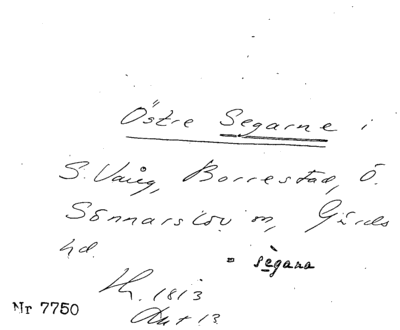 Östre Segarne i
S. Vång, Borrestad, Ö.
Sönnarslöv sn, Gärds
hd.
sègana
1813
Nr 7750